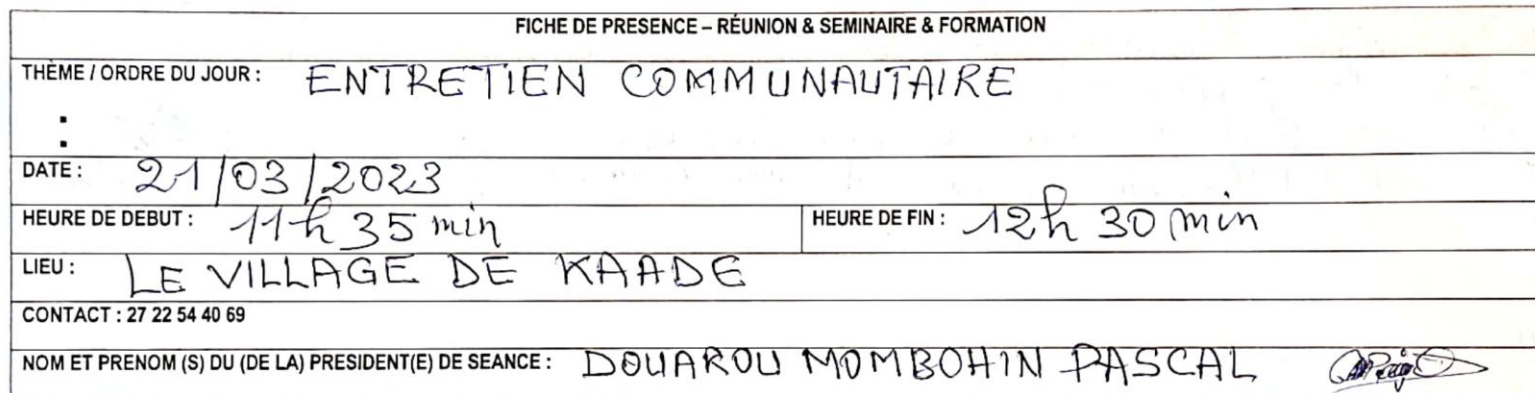 FICHE DE PRESENCE – RÉUNION & SEMINAIRE & FORMATION
THÈME / ORDRE DU JOUR : ENTRETIEN COMMUNAUTAIRE
▪
▪
DATE : 21/03/2023
HEURE DE DEBUT : 11h 35 min HEURE DE FIN : 12h 30 min
LIEU : LE VILLAGE DE KAADE
CONTACT : 27 22 54 40 69
NOM ET PRENOM (S) DU (DE LA) PRESIDENT(E) DE SEANCE : DOUAROU MOMBOHIN PASCAL